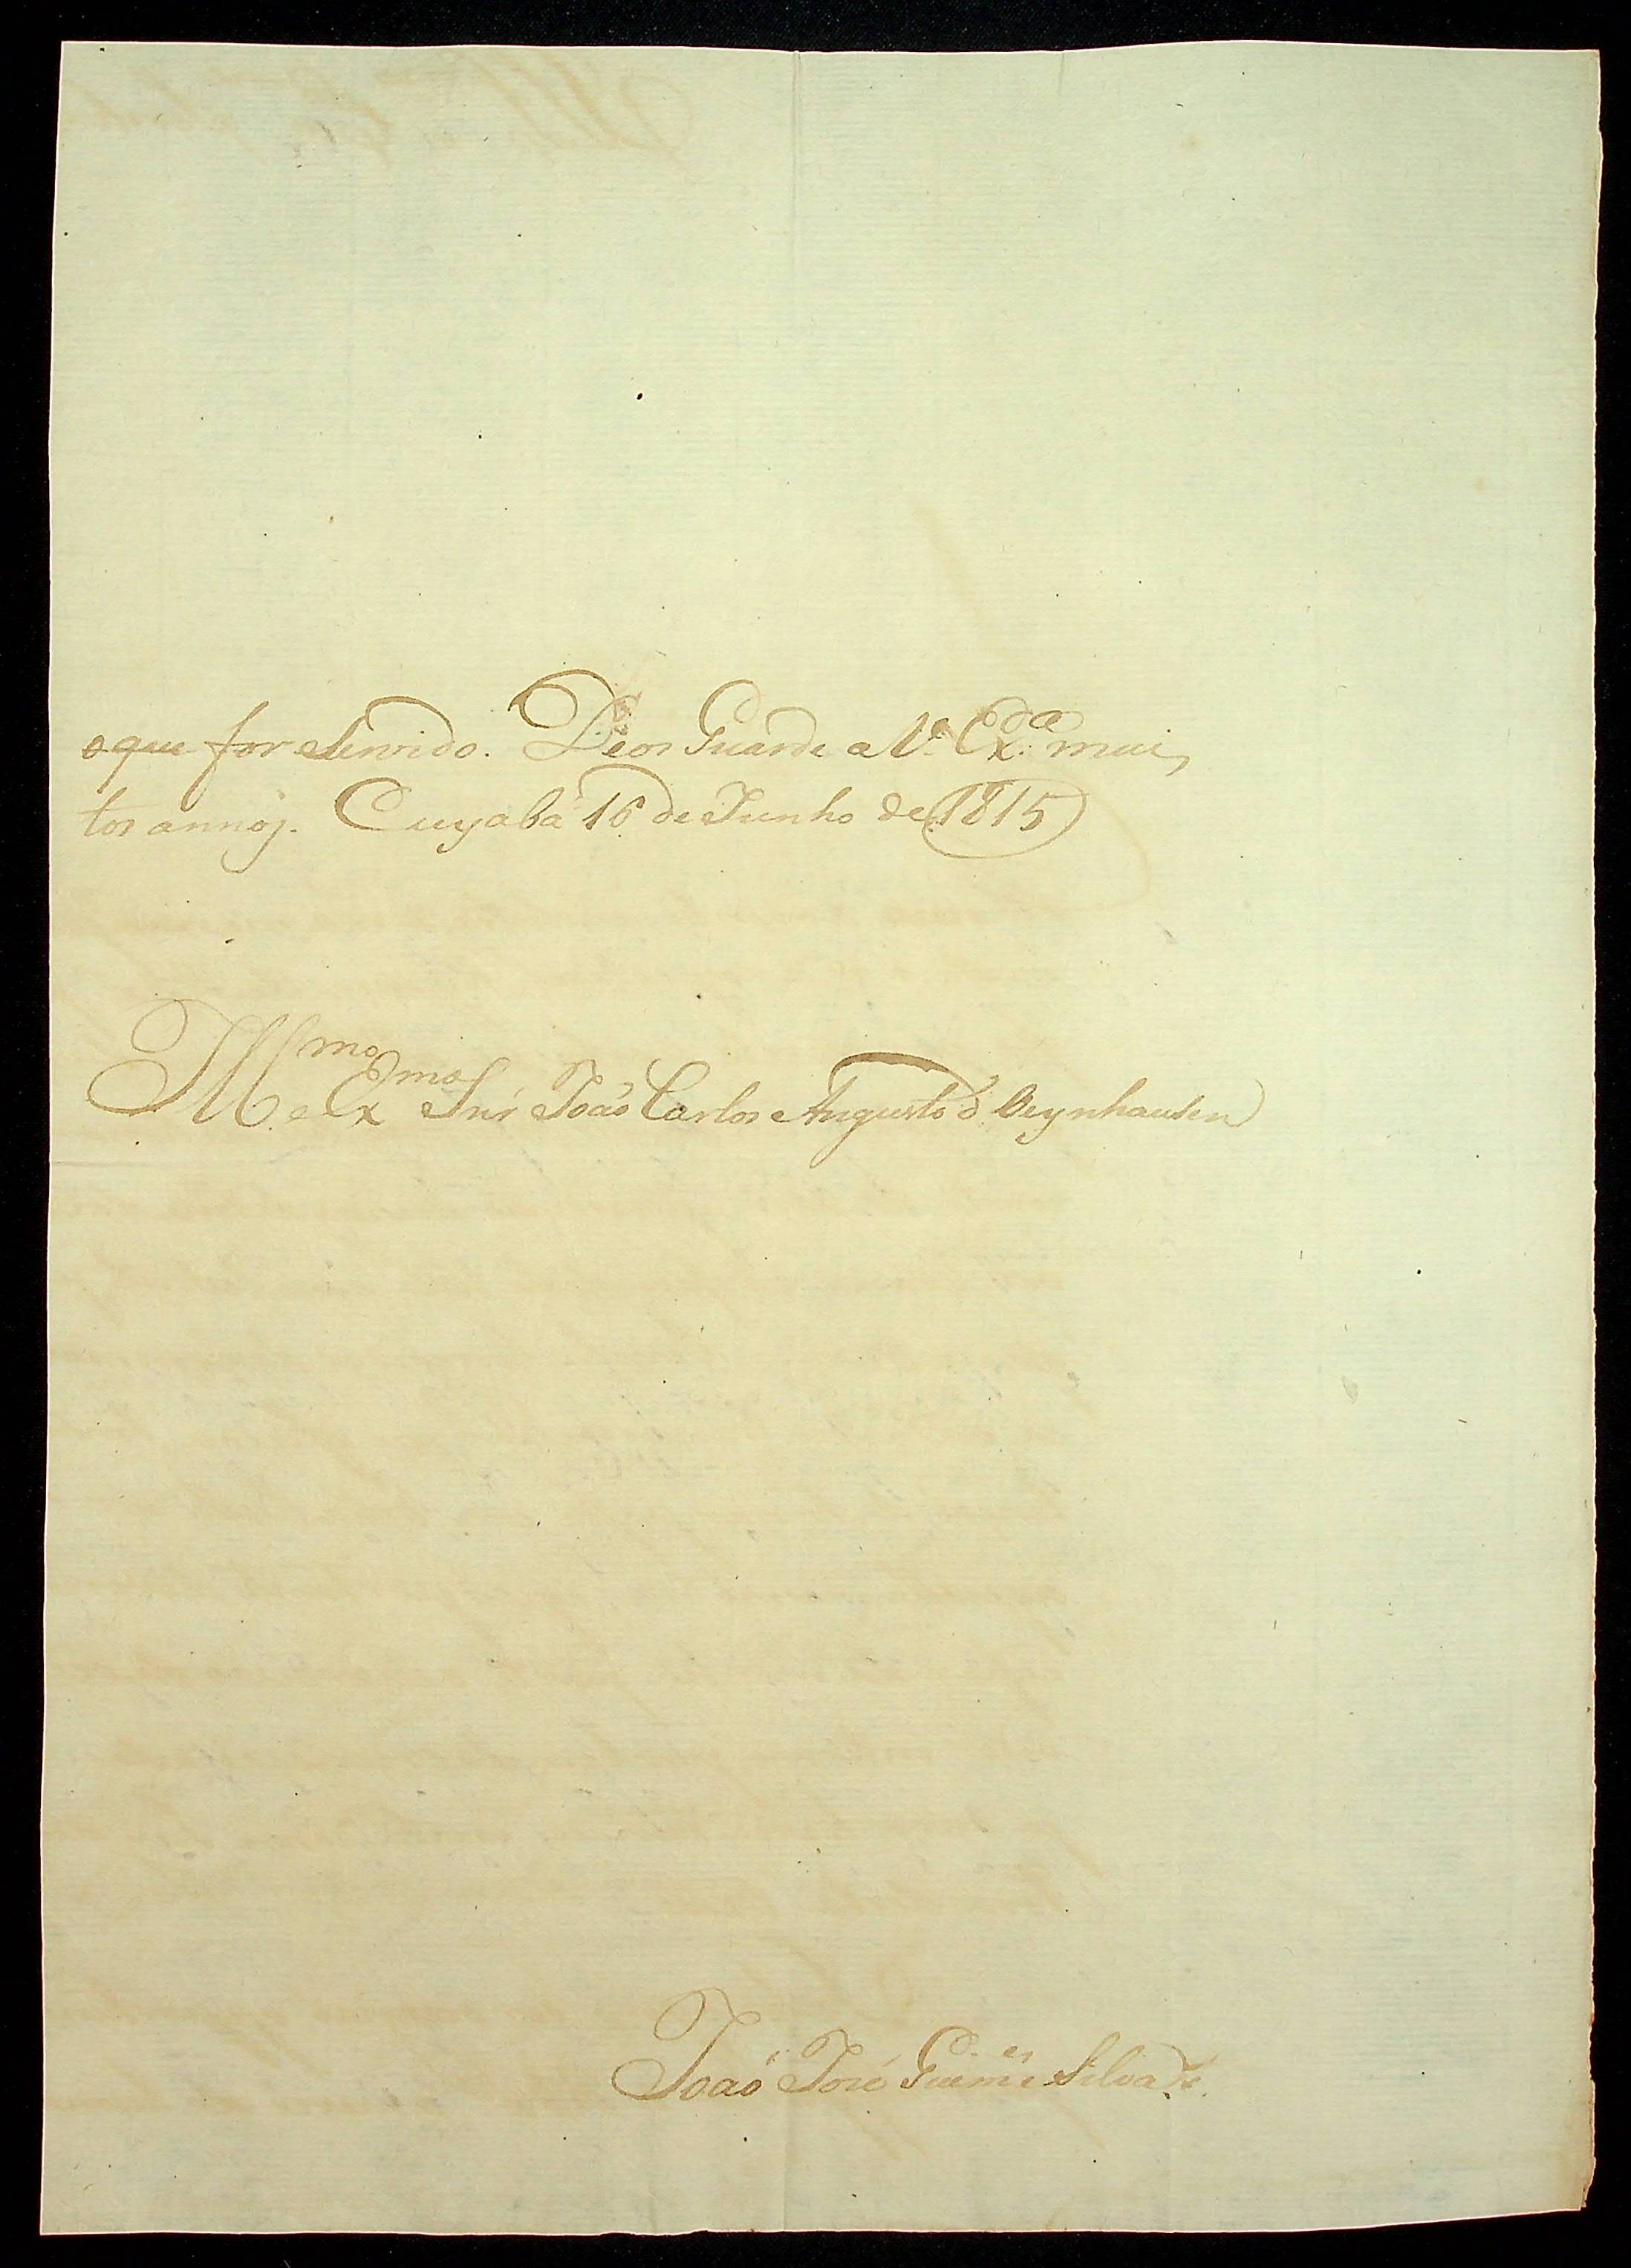 oque for Servido. Deos Guarde a V.ª Ex.ª mui
tos annos. Cuyabá 16 de Junho de 1815
Ill.mo e Ex.mo Snr' João Carlos Augusto d' Oeynhausen
João José Guim.es Silva